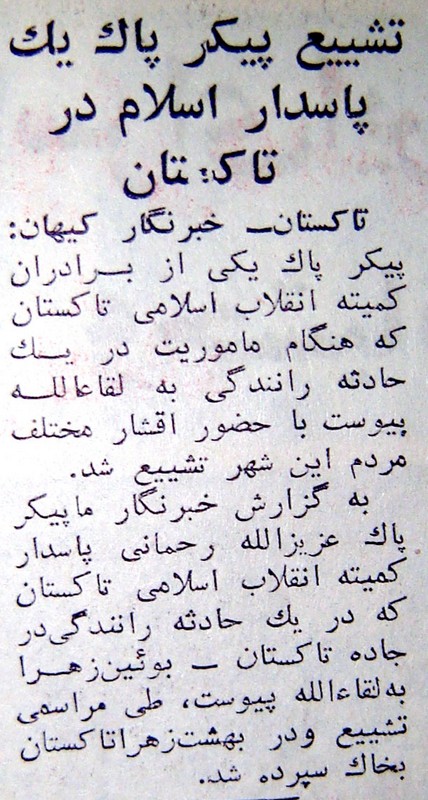 تشییع پیکر پاك یك
پاسدار اسلام در
تاکستان
تاکستان_ خبرنگار کیهان:
پیکر پاك یکی از بـــرادران
کمیته انقلاب اسلامی تاکستان
که هنگام ماموریت در یـــك
حادثه رانندگی به لقاءاللــه
پیوست با حضور اقشار مختلف
مردم این شهر تشییع شد.
به گزارش خبرنگار ماپیکر
پاك عزیزالله رحمانی پاسدار
کمیته انقلاب اسلامی تاکستان
که در یك حادثه رانندگی‌در
جاده تاکستان _ بوئین‌زهــرا
به‌لقاءالله پیوست، طی مراسمی
تشییع ودر بهشت‌زهراتاکستان
بخاك سپرده شد.